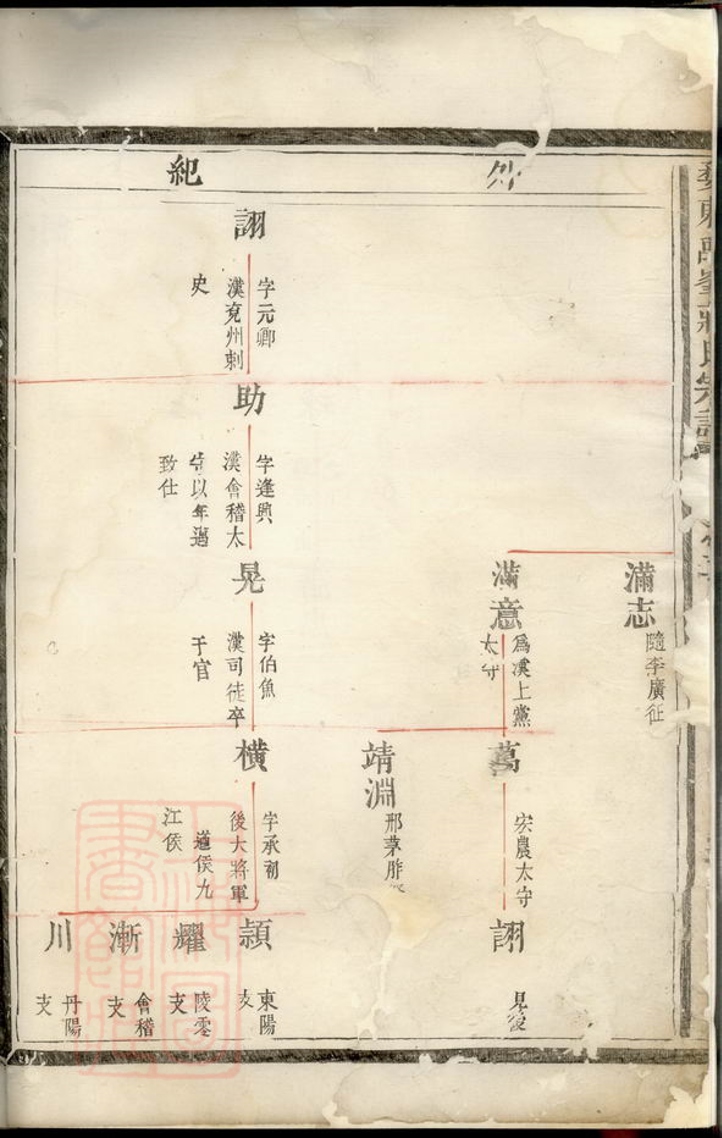 外紀
滿志
隨李廣征
滿意
為漢上黨
太守
萬
宏農太守
詡
見後
靖淵
詡
字元卿
漢兗州刺
史
助
字逢興
漢會稽太
守以年邁
致仕
晃
字伯魚
漢司徒卒
于官
橫
字承初
後大將軍
逡遒侯九
江侯
穎
東陽
支
耀
零陵
支
漸
會稽
支
川
丹陽
支